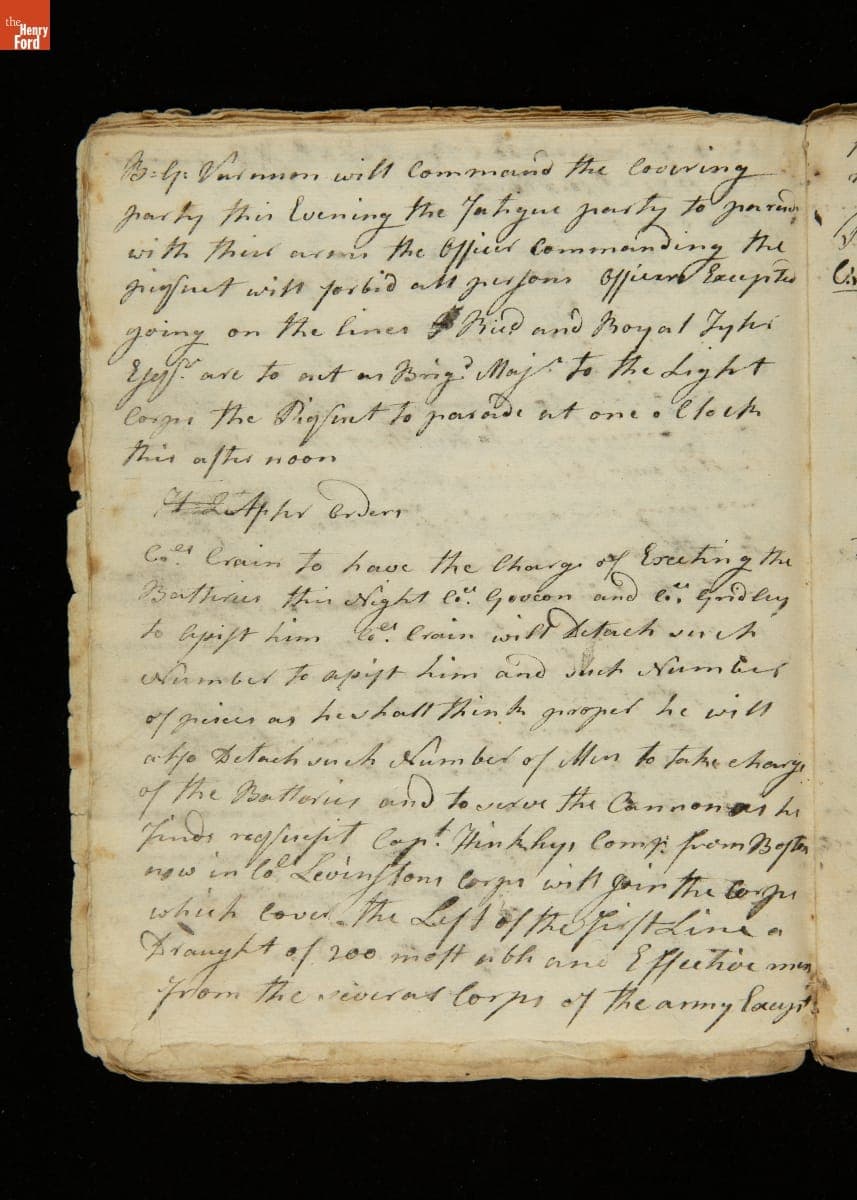 the
Henry
Ford
B: G: Varnnon will Command the Covering
party this Evening the Fatigue party to parade
with thier arms the Officer Commanding the
piqsuet will forbid all persons Officers Excepted
going on the lines Ricd and Royal Tyler
Eqsrs are to act as Brigd Majrs to the Light
Corps the Piqsuet to parade at one o Clock
this after noon
After Orders
Coll Crain to have the Charge of Erecting the
Batteries this Night Coll Goveon and Coll Gridley
to assist him Coll Crain will Detach such
Number to assist him and such Number
of pieces as he shall think proper he will
also Detach such Number of Men to take charge
of the Batteries and to serve the Cannon as he
finds reqsuesit Capt Hinkleys Comp: from Boston
now in Col Levinstons Corps will Join the Corps
which cover the Left of the First Line a
Draught of 200 most able and Effective men
from the several Corps of the army Except